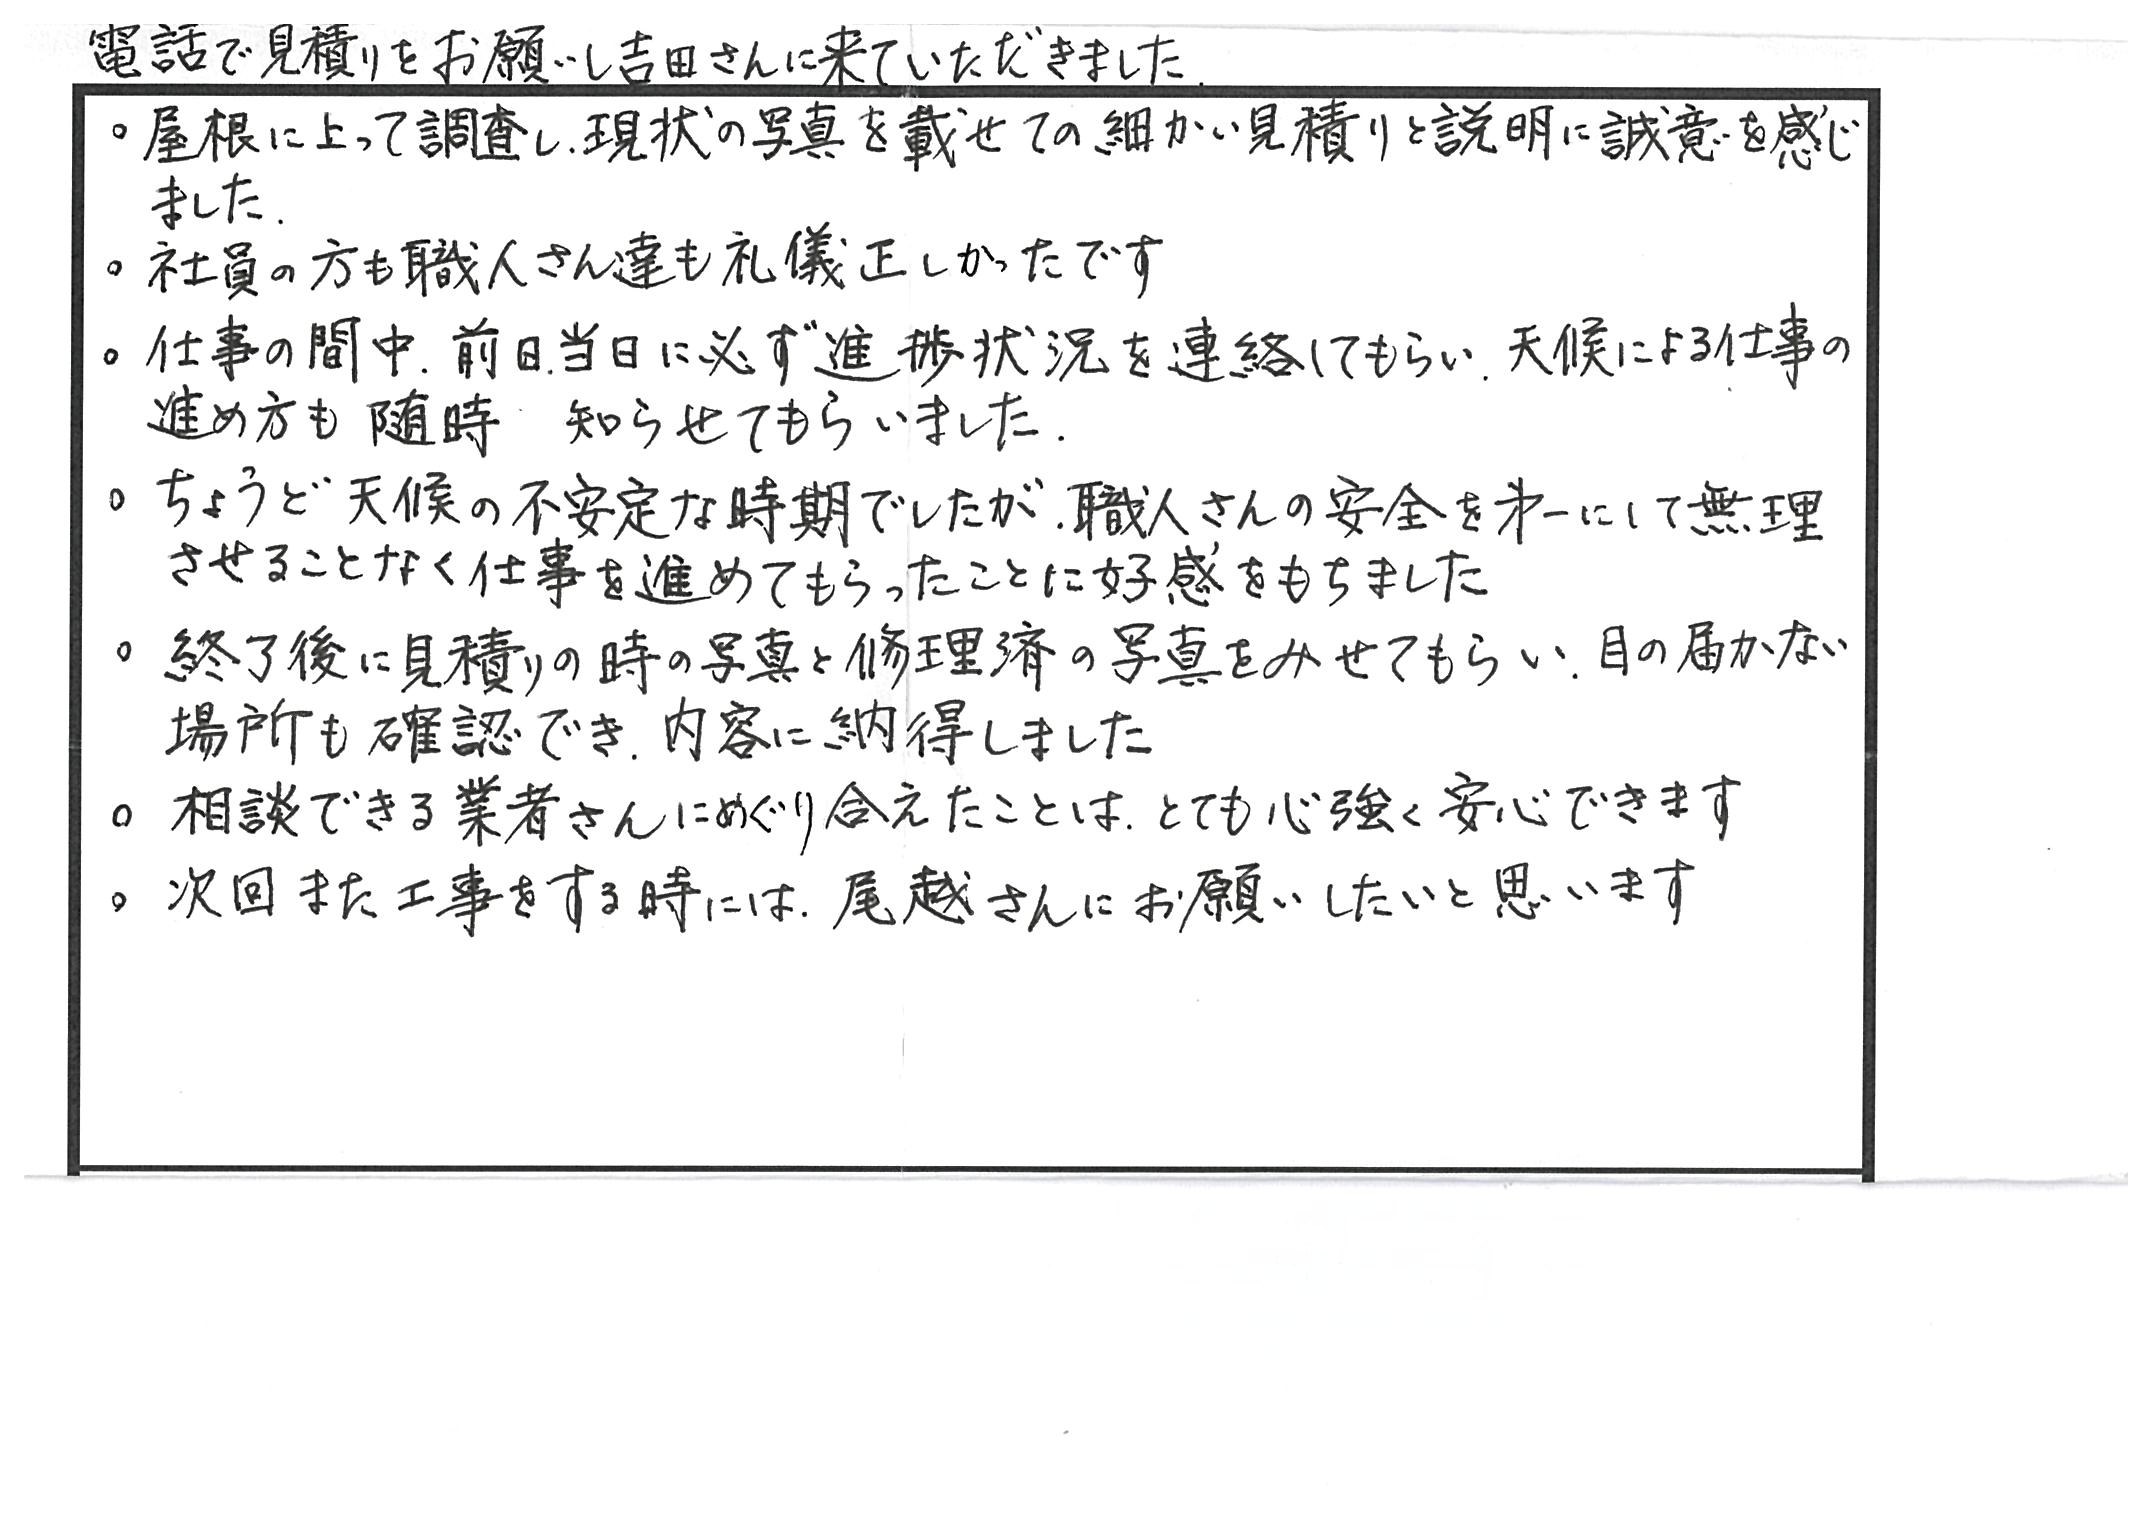 電話で見積りをお願いし吉田さんに来ていただきました.
○ 屋根に上って調査し.現状の写真を載せての細かい見積りと説明に誠意を感じ
ました.
○ 社員の方も職人さん達も礼儀正しかったです
○ 仕事の間中.前日.当日に必ず進捗状況を連絡してもらい.天候による仕事の
進め方も随時 知らせてもらいました.
○ ちょうど天候の不安定な時期でしたが.職人さんの安全を㐧一にして無理
させることなく仕事を進めてもらったことに好感をもちました
○ 終了後に見積りの時の写真と修理済の写真をみせてもらい.目の届かない
場所も確認でき.内容に納得しました
○ 相談できる業者さんにめぐり合えたことは.とても心強く安心できます
○ 次回また工事をする時には.尾越さんにお願いしたいと思います